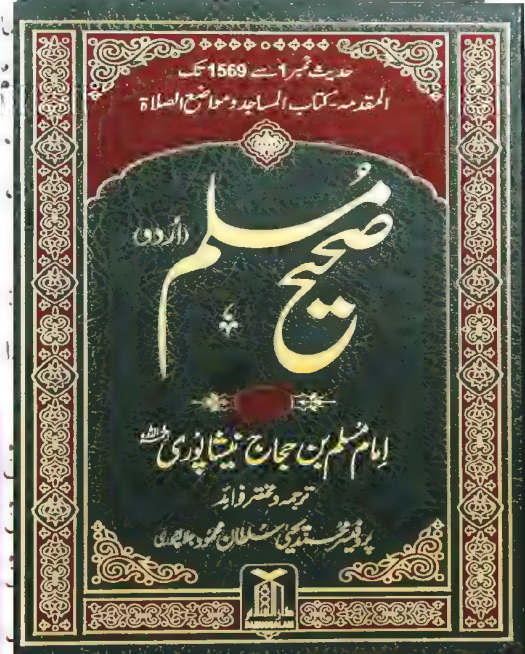 حدیث نمبر 1 سے 1569 تک
المقدمہ - کتاب المساجد و مواضع الصلاۃ
صحیح مسلم (اردو)
امام مسلم بن حجاج نیشاپوری رحمہ اللہ
ترجمہ و مختصر فوائد
پروفیسر محمد یحییٰ سلطان محمود جلالپوری
دارالسلام
DARUSSALAM